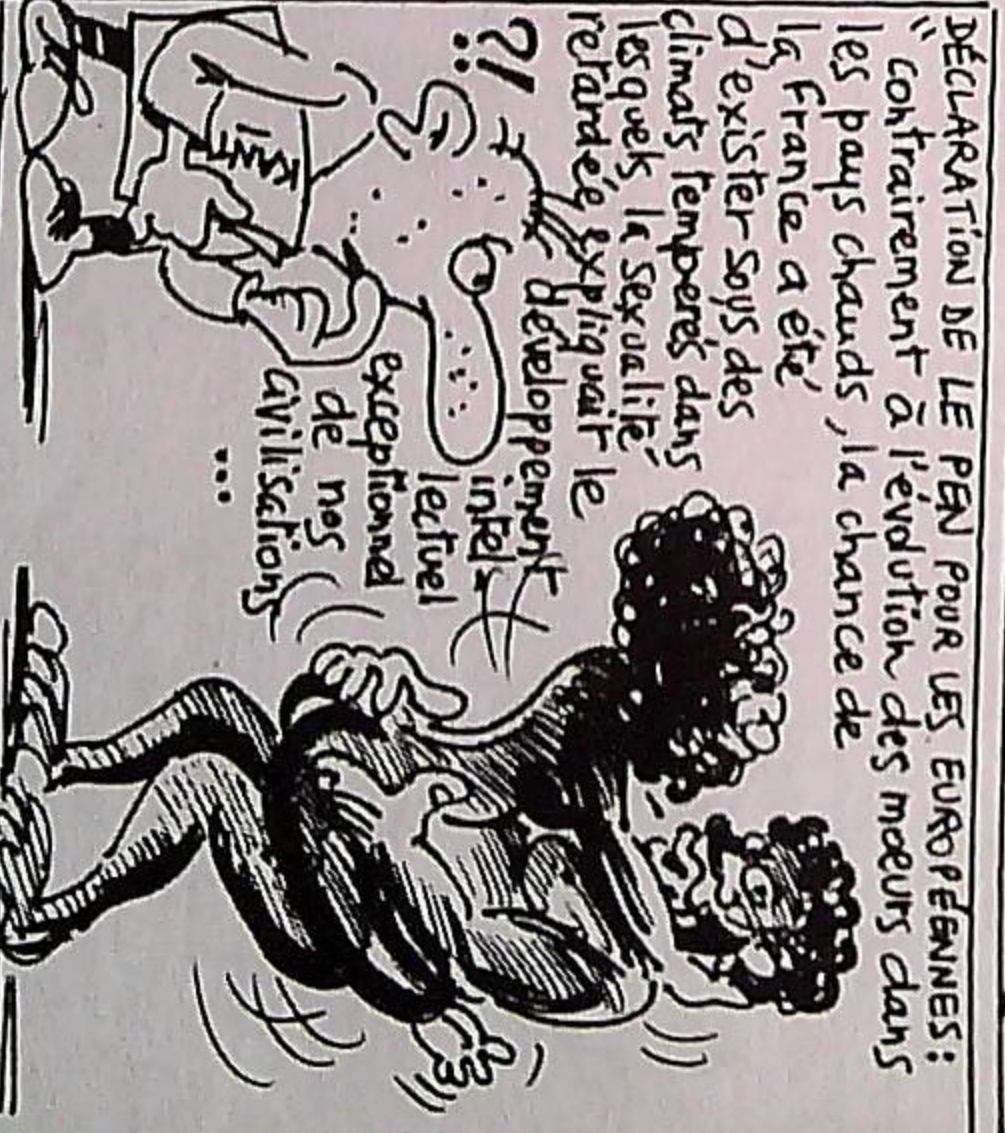 DÉCLARATION DE LE PEN POUR LES EUROPÉENNES:
"contrairement à l'évolution des moeurs dans
les pays chauds, la chance de
la France a été
d'exister soys des
climats tempérés dans
lesquels la sexualité
retardée expliquait le
développement
intel-
lectuel
exceptionnel
de nos
civilisations
...
?!